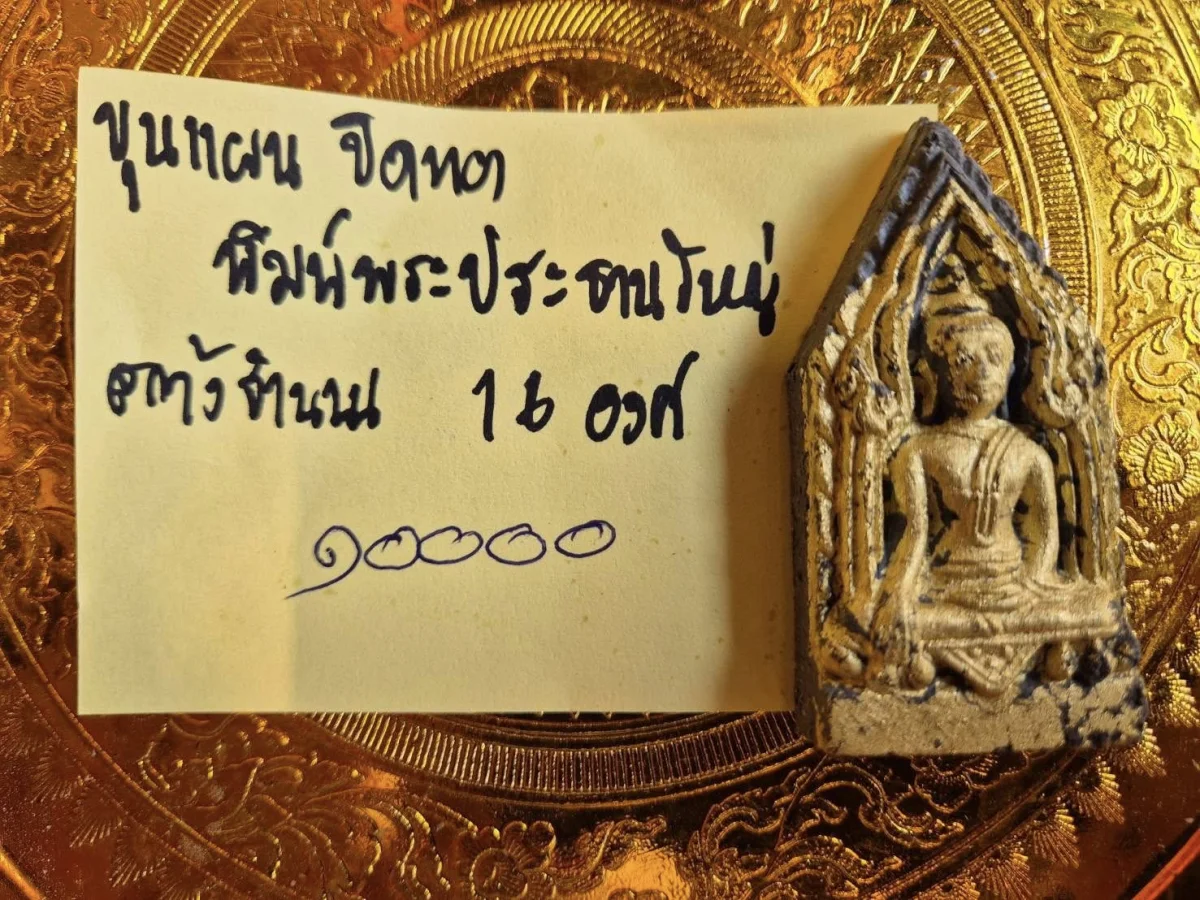 ขุนแผน ปิดทอง
พิมพ์พระประธานใหญ่
สร้างจำนวน 16 องค์
๑๐๐๐๐